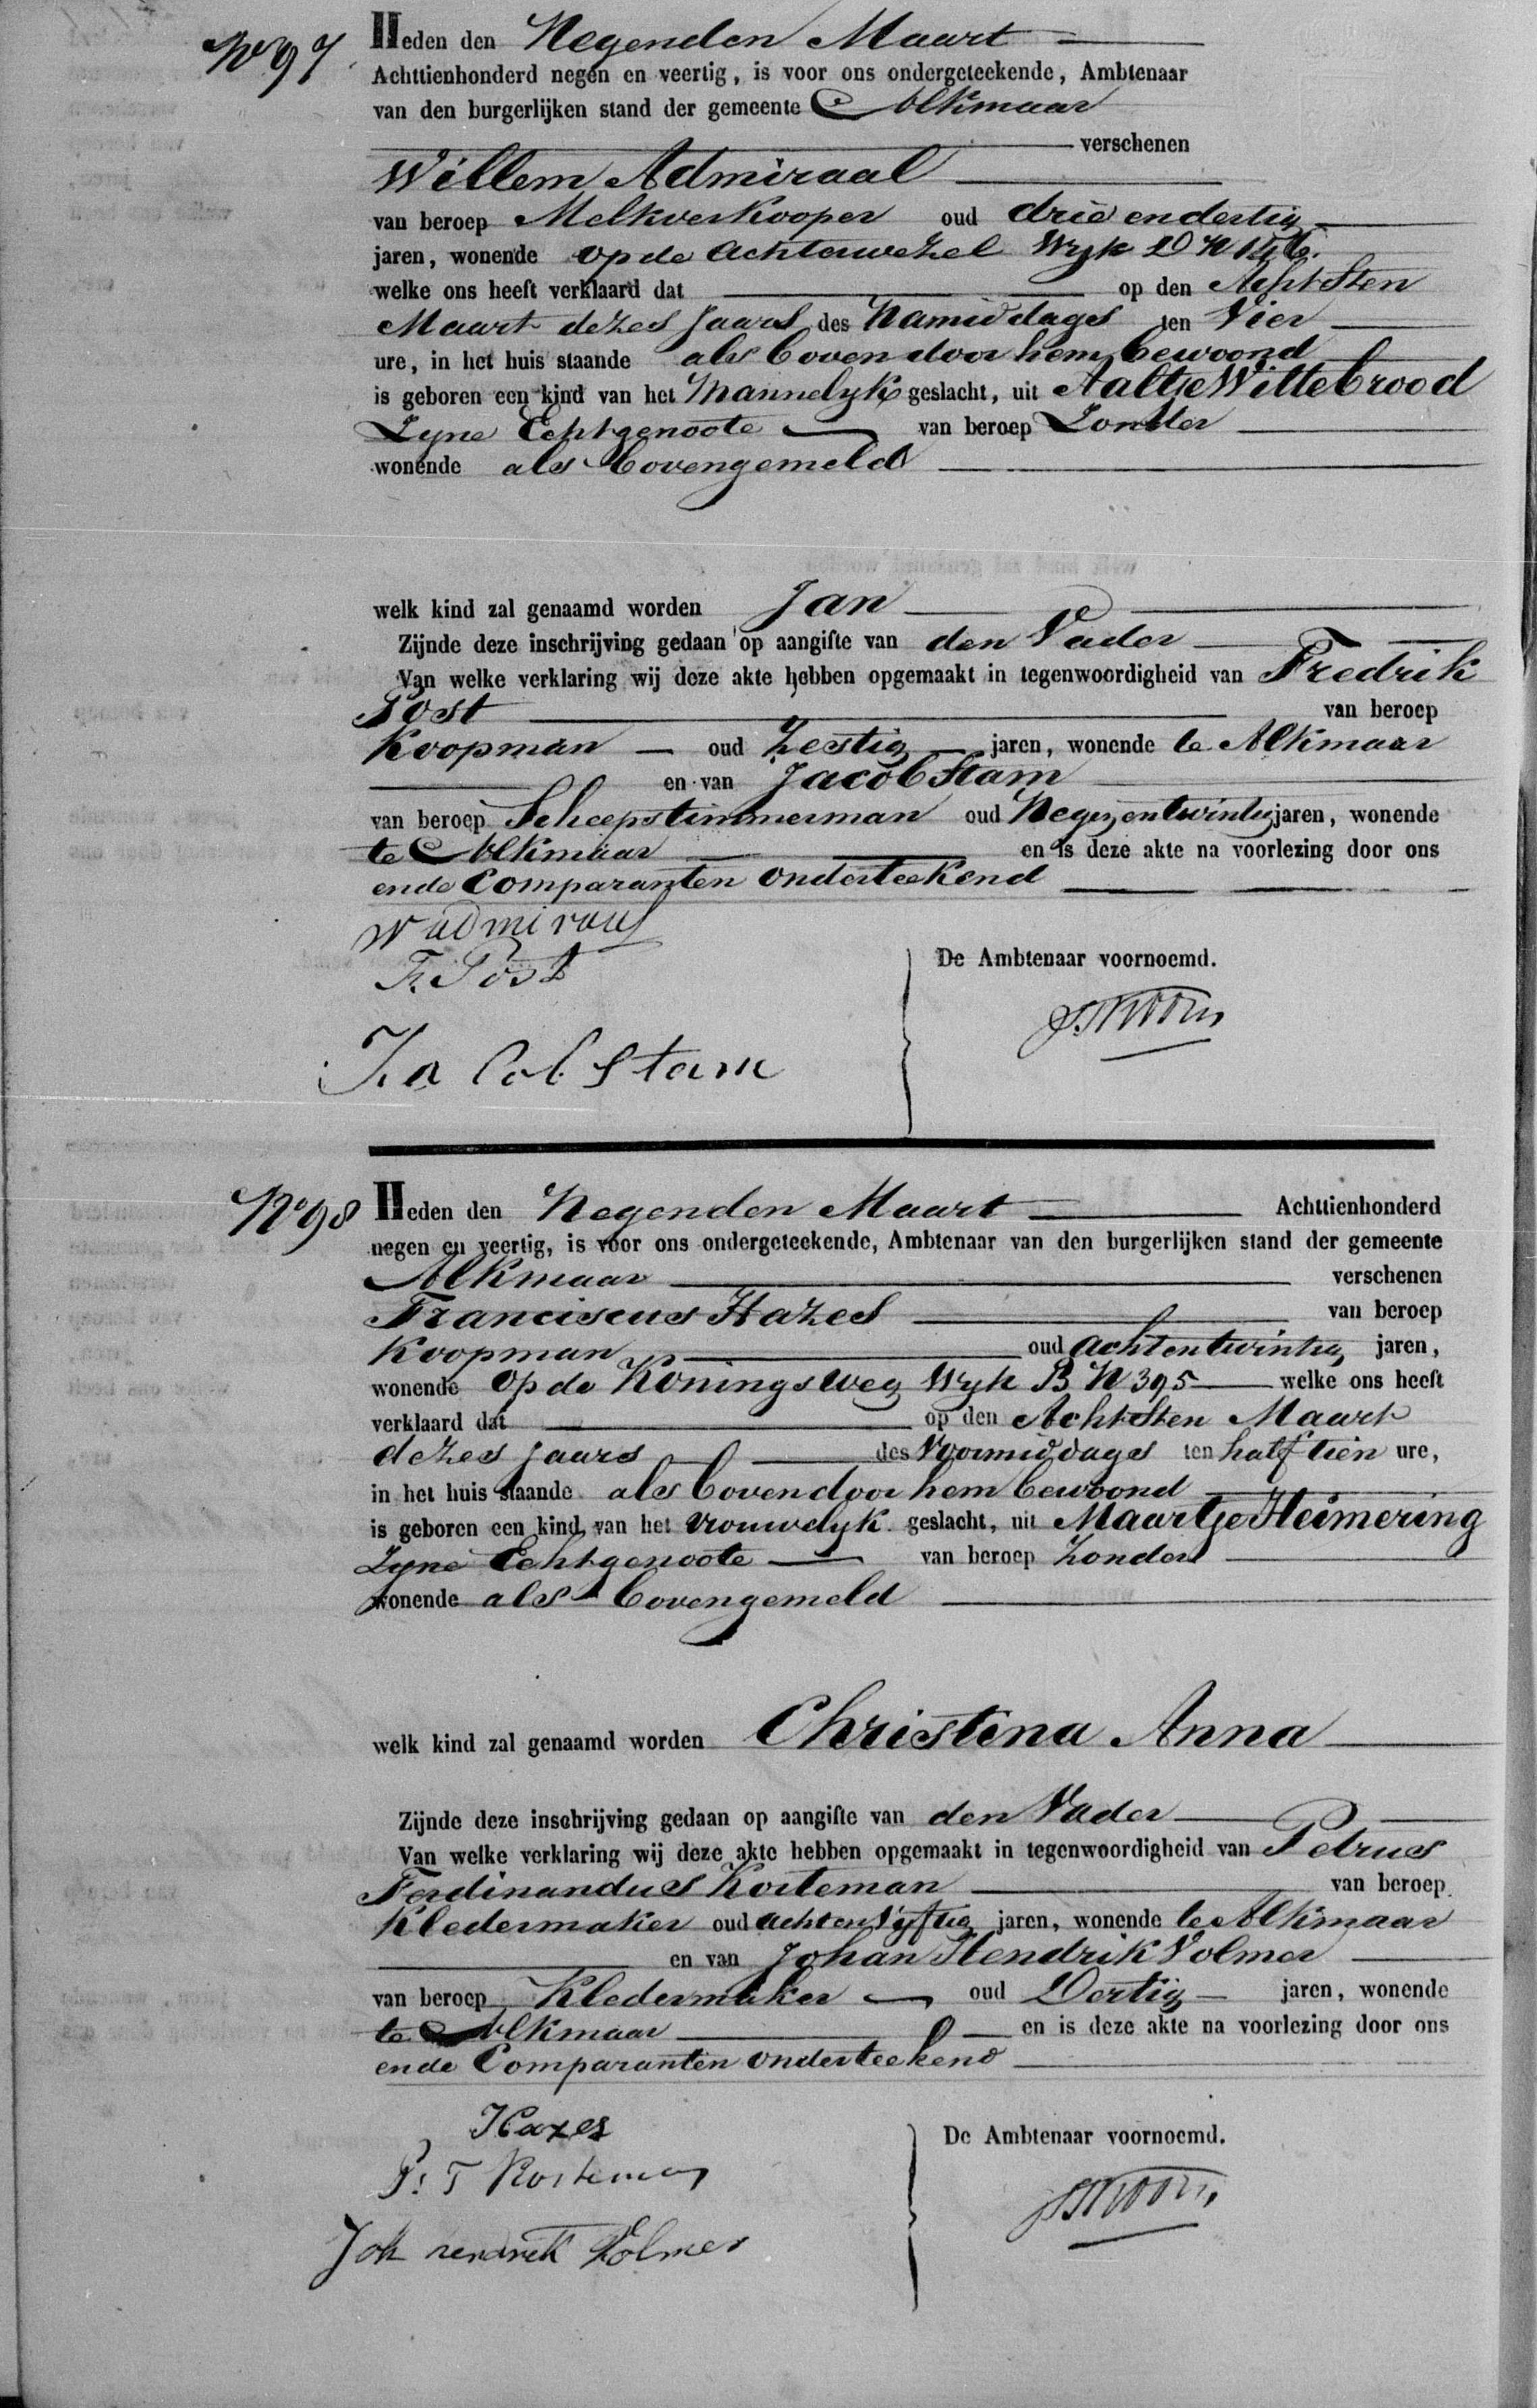 No 97
Heden den Negenden Maart
Achttienhonderd negen en veertig, is voor ons ondergeteekende, Ambtenaar
van den burgerlijken stand der gemeente Alkmaar
verschenen
Willem Admiraal
van beroep Melkverkooper oud drie en dertig
jaren, wonende op de Achter Wyk D N
welke ons heeft verklaard dat op den Achtsten
Maart dezes Jaars des Namiddages ten Vier
ure, in het huis staande als boven door hem bewoond
is geboren een kind van het Mannelyk geslacht, uit Aaltje Wittebrood
Zyne Echtgenoote van beroep Zonder
wonende als bovengemeld
welk kind zal genaamd worden Jan
Zijnde deze inschrijving gedaan op aangifte van den Vader
Van welke verklaring wij deze akte hebben opgemaakt in tegenwoordigheid van Fredrik
Post van beroep
Koopman oud Zestig jaren, wonende te Alkmaar
en van Jacob Stam
van beroep Scheepstimmerman oud Negenentwintig jaren, wonende
te Alkmaar en is deze akte na voorlezing door ons
ende Comparanten onderteekend
W admiraal
F. Post
De Ambtenaar voornoemd.
Ja Cob Stam
No 98
Heden den Negenden Maart Achttienhonderd
negen en veertig, is voor ons ondergeteekende, Ambtenaar van den burgerlijken stand der gemeente
Alkmaar verschenen
Franciscus Hazes van beroep
Koopman oud achtentwintig jaren,
wonende op de Koningsweg Wyk B N 395 welke ons heeft
verklaard dat op den Achtsten Maart
dezes jaars des Voormiddages ten half tien ure,
in het huis staande als boven door hem bewoond
is geboren een kind van het vrouwelyk geslacht, uit Maartje Heimering
Zyne Echtgenoote van beroep Zonder
wonende als bovengemeld
welk kind zal genaamd worden Christina Anna
Zijnde deze inschrijving gedaan op aangifte van den Vader
Van welke verklaring wij deze akte hebben opgemaakt in tegenwoordigheid van Petrus
Ferdinandus Korteman van beroep
Kledermaker oud achtenvyftig jaren, wonende te Alkmaar
en van Johan Hendrik Volmer
van beroep Kledermaker oud Dertig jaren, wonende
te Alkmaar en is deze akte na voorlezing door ons
ende Comparanten onderteekend
Hazes
De Ambtenaar voornoemd.
P. F Korteman
Joh hendrik Volmer